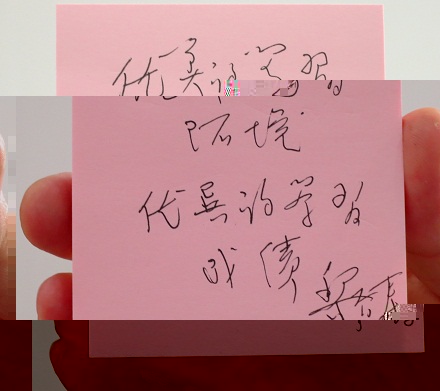 优异的学习
环境
优异的学习
成绩